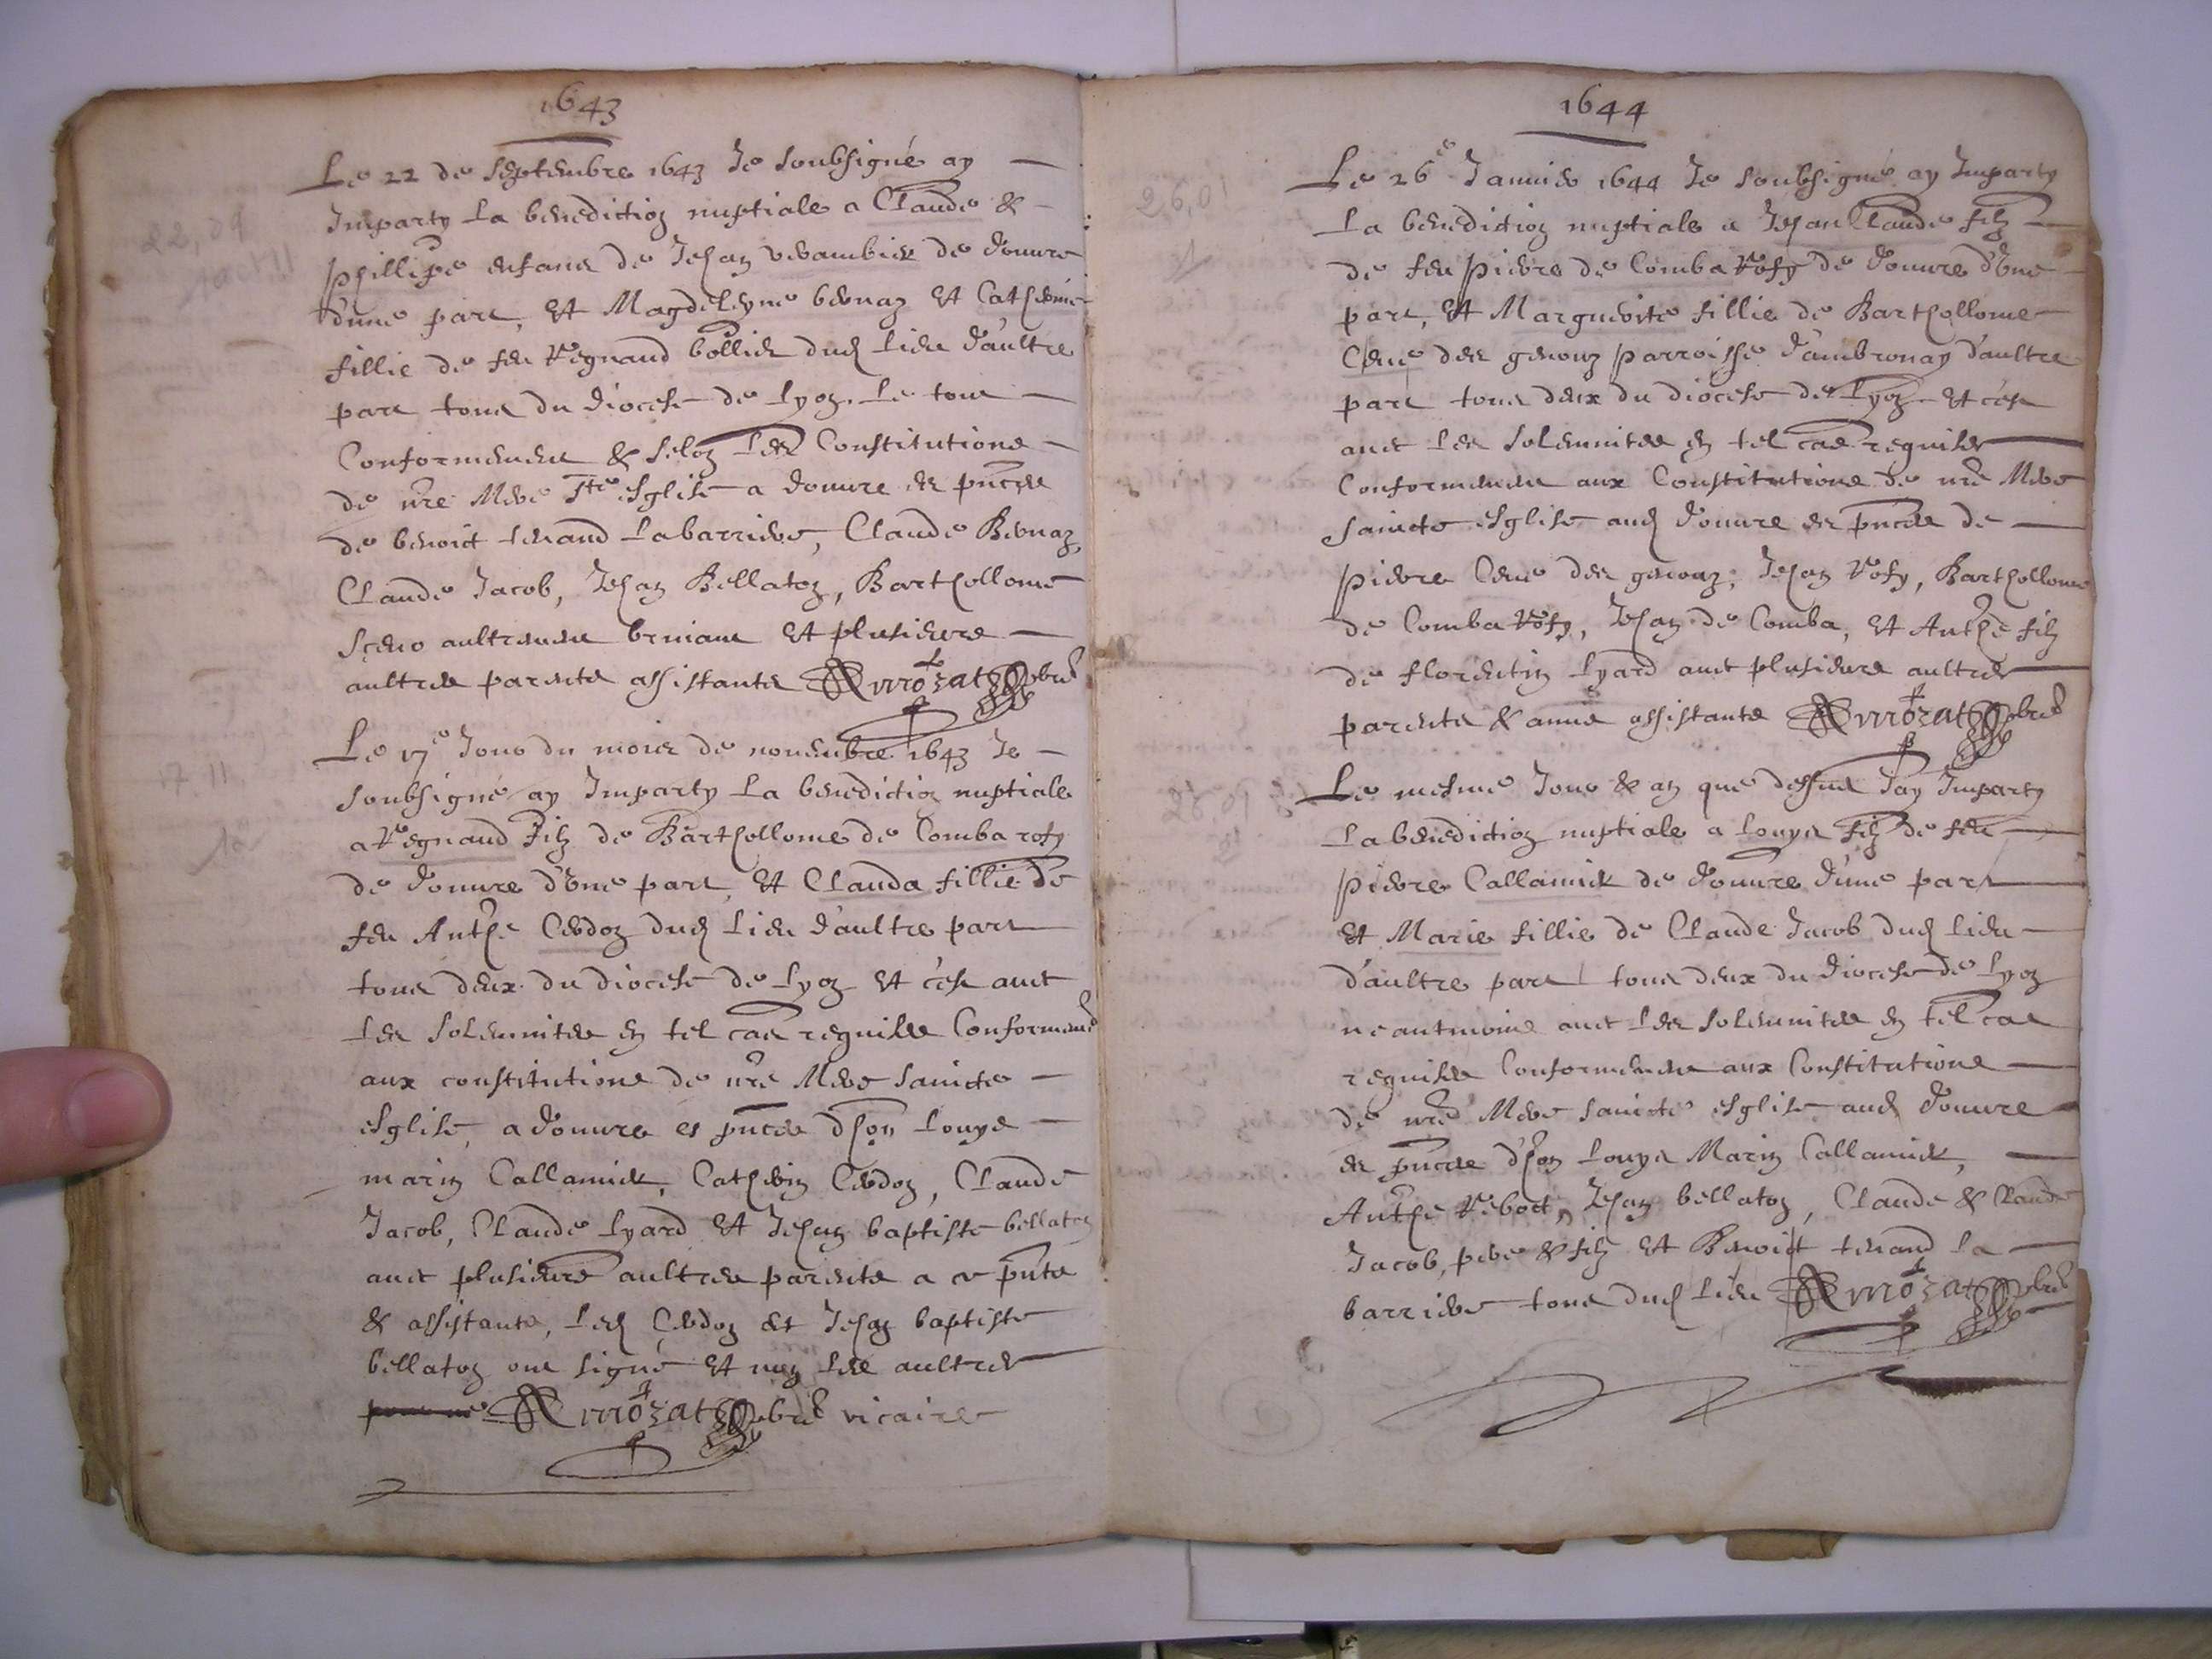 1643
Le 22 de septembre 1643 Je soubsigné ay
Imparty la benediction nuptiale a Claude &
phillipe enfans de Jehan de douvre
d'une part, et Magdeleyne bernaz et Catherine
fillie de feu Regnaud bollier dud lieu d'aultre
part tous du diocese de lyon. Le tout
Conformement & selon les Constitutions
de nre Mere ste esglise a douvre es pnces
de benoict tenand labarriere, Claude Bernaz,
Claude Jacob, Jehan Bellaton, Barthollome
aultrement et plusieurs
aultres parents assistants pbre
Le 17e Jour du mois de novembre 1643 Je
soubsigné ay Imparty la benediction nuptiale
a Regnaud filz de Barthollome de Comba rosy
de douvre d'une part, et Clauda fillie de
feu Anthe Cerdon dud lieu d'aultre part
tous deux du diocese de lyon et c'est avec
les solemnites en tel cas requises Conformemt
aux constitutions de nre Mere saincte
esglise, a douvre es pnces d'hon louys
marin Callamier, Catherin Cerdon, Claude
Jacob, Claude lyard et Jehan baptiste bellaton
avec plusieurs aultres parents a ce pnts
& assistants, led Cerdon et Jehan baptiste
bellaton ont signé et non les aultres
pbre vicaire
1644
Le 26e Janvier 1644 Je soubsigné ay Imparty
la benediction nuptiale a Jehan Claude filz
de feu pierre de Comba Rosy de douvre d'une
part, et Marguerite fillie de Barthollome
Cene des genouz parroisse d'ambronay d'aultre
part tous deux du diocese de lyon et c'est
avec les solemnites en tel cas requises
Conformement aux Constitutions de nre Mere
saincte esglise aud douvre es pnces de
pierre Cene des genouz, Jehan Rosy, Barthollome
de Comba Rosy, Jehan de Comba, et Anthe filz
de florentin lyard avec plusieurs aultres
parents & amis assistants pbre
Le mesme Jour & an que dessus J'ay Imparty
la benediction nuptiale a louys filz de feu
pierre Callamier de douvre d'une part
et Marie fillie de Claude Jacob dud lieu
d'aultre part tous deux du diocese de lyon
neantmoins avec les solemnites en tel cas
requises Conformement aux Constitutions
de nre Mere saincte esglise aud douvre
es pnces d'hon louys Marin Callamier,
Anthe Reboct, Jehan bellaton, Claude & Claude
Jacob, pere & filz et Benoict tenand la
barriere tous dud lieu pbre